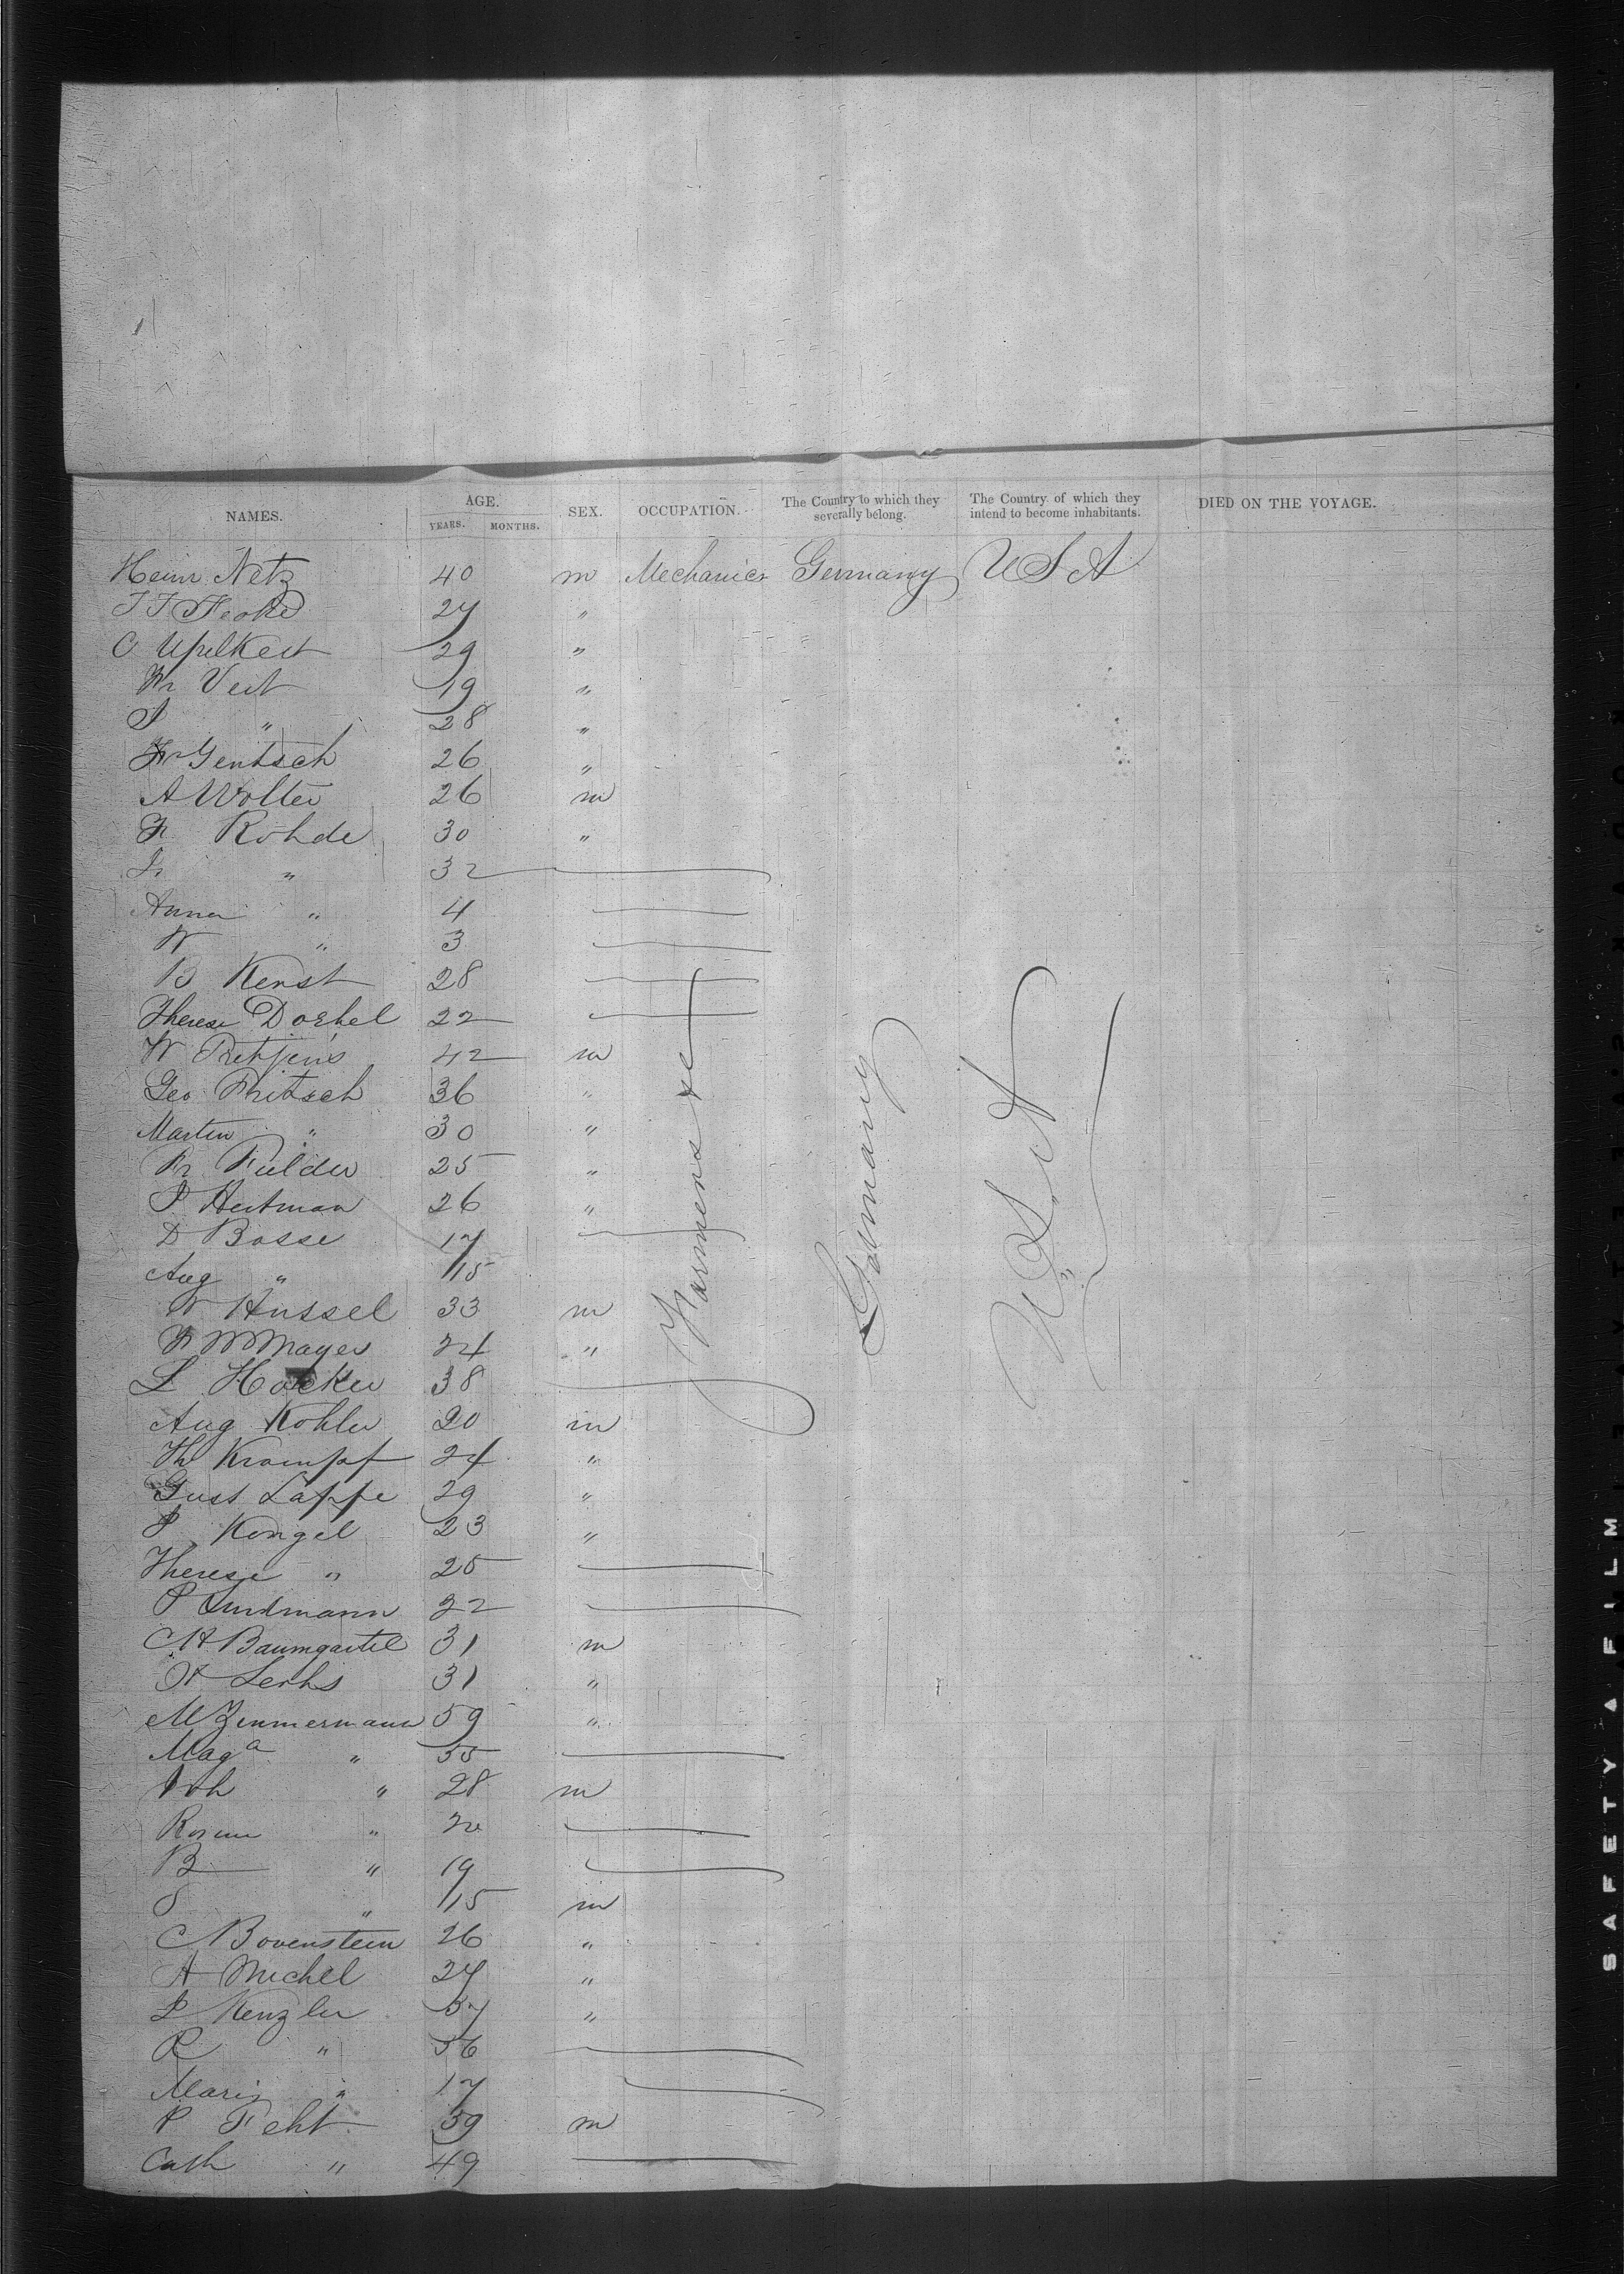 NAMES. AGE. YEARS. MONTHS. SEX. OCCUPATION. The Country to which they severally belong. The Country of which they intend to become inhabitants. DIED ON THE VOYAGE.
Heinr Netz 40 m Mechanics Germany U S A
27 "
C 29 "
Fr Veit 19 "
" 28 "
Fr Gentsch 26 "
A Wolter 26 m
Fr Rohde 30 "
Fr " 32
Anna " 4
W " 3
B Kerst 28
Therese 22
W 42 m
Geo Fritsch 36 "
Martin " 30 "
Fr Fielder 25 "
Heitman 26 "
D Bosse 17
Aug " 15
W Hussel 33 m
Fr W Mayer 24 "
L Hocker 38
Aug Kohler 20 m
Th Krampf 24 "
Gust Lappe 29 "
Kengel 23 "
Therese " 25
P Lindmann 22
C H Baumgartel 31 m
31 "
M Zimmermann 59 "
Maga " 55
Joh " 28 m
" 
B " 19
" 15 m
C Bovenstein 26 "
A Michel 27 "
Kenzler 57 "
R " 56
Maria " 17
P Feht 59 m
Cath " 49
Farmers etc
Germany
U. S. A
SAFETY FILM